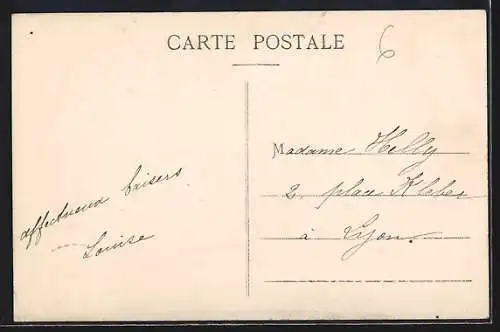 CARTE POSTALE
6
affectueux baisers
Louise
Madame Helly
2, place Kleber
à Lyon.